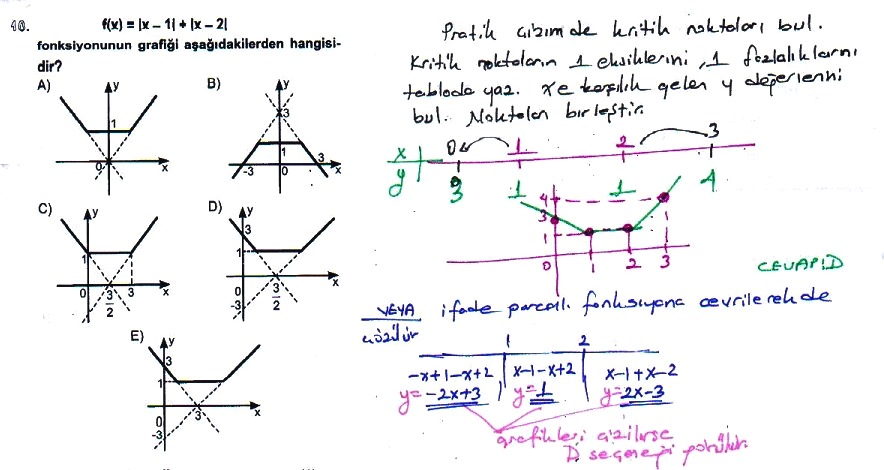 40. f(x) = |x – 1| + |x – 2|
fonksiyonunun grafiği aşağıdakilerden hangisi-
dir?
A) y 1 0 x
B) y 3 1 -3 0 3 x
C) y 1 0 3/2 3 x
D) y 3 1 0 -3 3/2 x
E) y 3 1 0 -3 3 x
Pratik çizimde kritik noktaları bul.
Kritik noktaların 1 eksiklerini, 1 fazlalıklarını
tabloda yaz. x e karşılık gelen y değerlerini
bul. Noktaları birleştir.
x 0 1 2 3
y 3 1 1 4
4
3
1
0 1 2 3
CEVAP:D
VEYA ifade parçalı fonksiyona çevrilerekde
çözülür
1 2
-x+1-x+2 x-1-x+2 x-1+x-2
y=-2x+3 y=1 y=2x-3
grafikleri çizilirse
D seçeneği görülür.